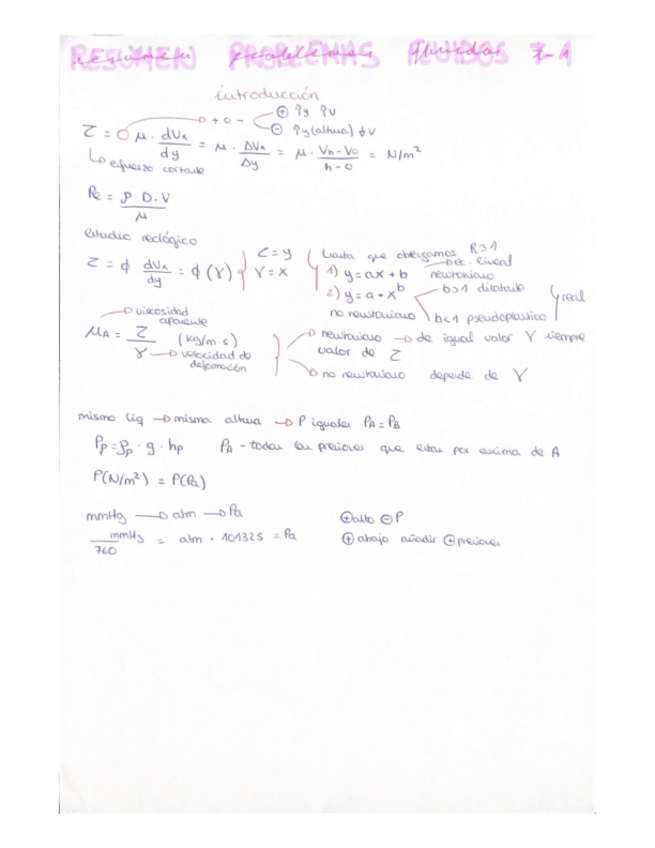 RESUMEN PROBLEMAS FLUIDOS 7-1
introducción
⊕ ↑y ↑v
+ o -
⊖ ↑y (altura) ↓v
τ = ○ μ · dVx/dy = μ · ΔVx/Δy = μ · (Vh - V0)/(h - 0) = N/m²
esfuerzo cortante
Re = ρ · D · V / μ
estudio reológico
τ = ϕ dVx/dy = ϕ (γ) } τ = y
γ = x
hasta que obtengamos R≥1
1) y = ax + b newtoniano
2) y = a · x^b
b>1 dilatante
real
no newtoniano b<1 pseudoplástico
viscosidad aparente
μA = τ/γ (kg/m·s)
velocidad de deformación
newtoniano → da igual valor γ siempre
valor de τ
no newtoniano depende de γ
mismo liq → misma altura → P iguales PA = PB
Pp = ρp · g · hp PA - todas las presiones que estan por encima de A
P(N/m²) = P(Pa)
mmHg → atm → Pa
mmHg/760 = atm · 101325 = Pa
⊕ alto ⊖ P
⊕ abajo añadir ⊕ presiones